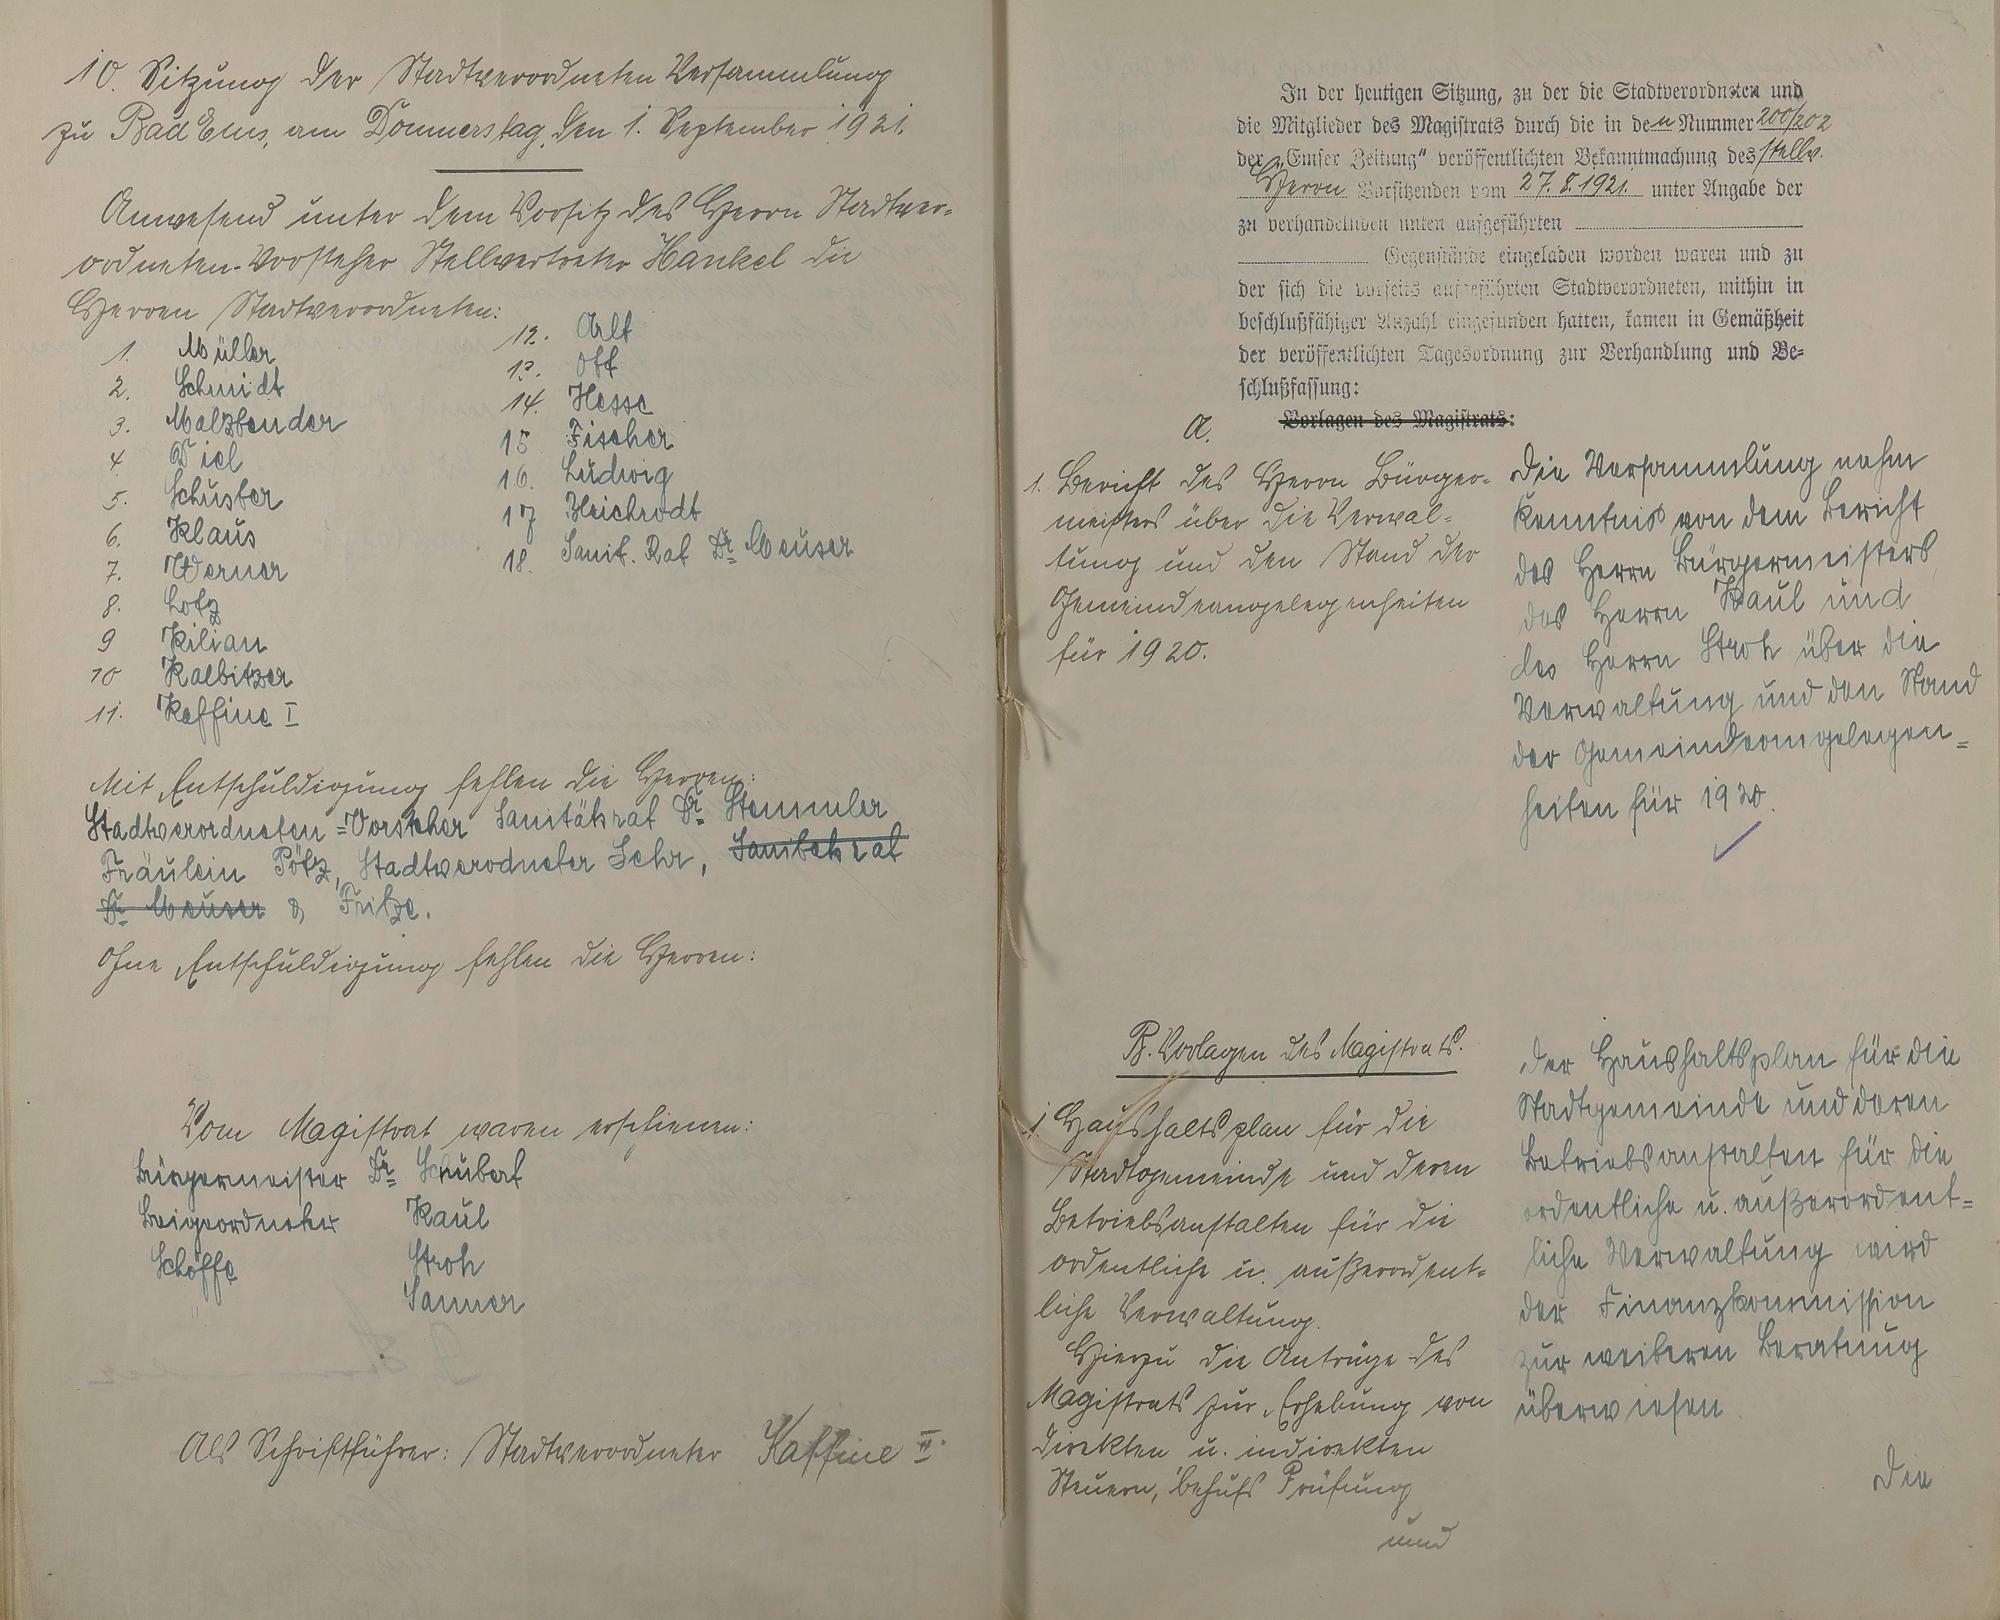 10. Sitzung der Stadtverordneten Versammlung
zu Bad Ems, am Donnerstag, den 1. September 1921.
Anwesend unter dem Vorsitz des Herrn Stadtver-
ordneten-Vorsteher Stellvertreter Hankel die
Herren Stadtverordneten:
1. Müller
2. Schmidt
3. Malzbender
4 Diel
5. Schuster
6. Klaus
7. Werner
8. Lotz
9 Kilian
10 Kalbitzer
11. Kaffine I
12. Alt
13. Ott
14. Hesse
15 Fischer
16. Ludwig
17 Bleichrodt
18. Sanit. Rat Dr. Meuser
Mit Entschuldigung fehlen die Herren:
Stadtverordneten=Vorsteher Sanitätsrat Dr. Stemmler
Fräulein Pötz, Stadtverodneter Sehr, Sanitätsrat
Dr. Meuser & Fritze.
Ohne Entschuldigung fehlen die Herren:
Vom Magistrat waren erschienen:
Bürgermeister Dr. Schubert
Beigeordneter Kaul
Schöffe Stroh
" Sanner
Als Schriftführer: Stadtverordneter Kaffine II.
In der heutigen Sitzung, zu der die Stadtverordneten und
die Mitglieder des Magistrats durch die in den Nummer 200/202
der „Emser Zeitung“ veröffentlichten Bekanntmachung des stellv.
Herrn Vorsitzenden vom 27.8.1921. unter Angabe der
zu verhandelnden unten aufgeführten
Gegenstände eingeladen worden waren und zu
der sich die vorseits aufgeführten Stadtverordneten, mithin in
beschlußfähiger Anzahl eingefunden hatten, kamen in Gemäßheit
der veröffentlichten Tagesordnung zur Verhandlung und Be-
schlußfassung:
A. Vorlagen des Magistrats:
1. Bericht des Herrn Bürger-
meisters über die Verwal-
tung und den Stand der
Gemeindeangelegenheiten
für 1920.
Die Versammlung nahm
Kenntnis von dem Bericht
des Herrn Bürgermeisters,
des Herrn Kaul und
des Herrn Stroh über die
Verwaltung und den Stand
der Gemeindeangelegen=
heiten für 1920.
B. Vorlagen des Magistrats.
1. Haushaltsplan für die
Stadtgemeinde und deren
Betriebsanstalten für die
ordentliche u. außerordent-
liche Verwaltung.
Hierzu die Anträge des
Magistrats zur Erhebung von
direkten u. indirekten
Steuern, behufs Prüfung
und
Der Haushaltsplan für die
Stadtgemeinde und deren
Betriebsanstalten für die
ordentliche u. außerordent=
liche Verwaltung wird
der Finanzkommission
zur weiteren Beratung
überwiesen
Die